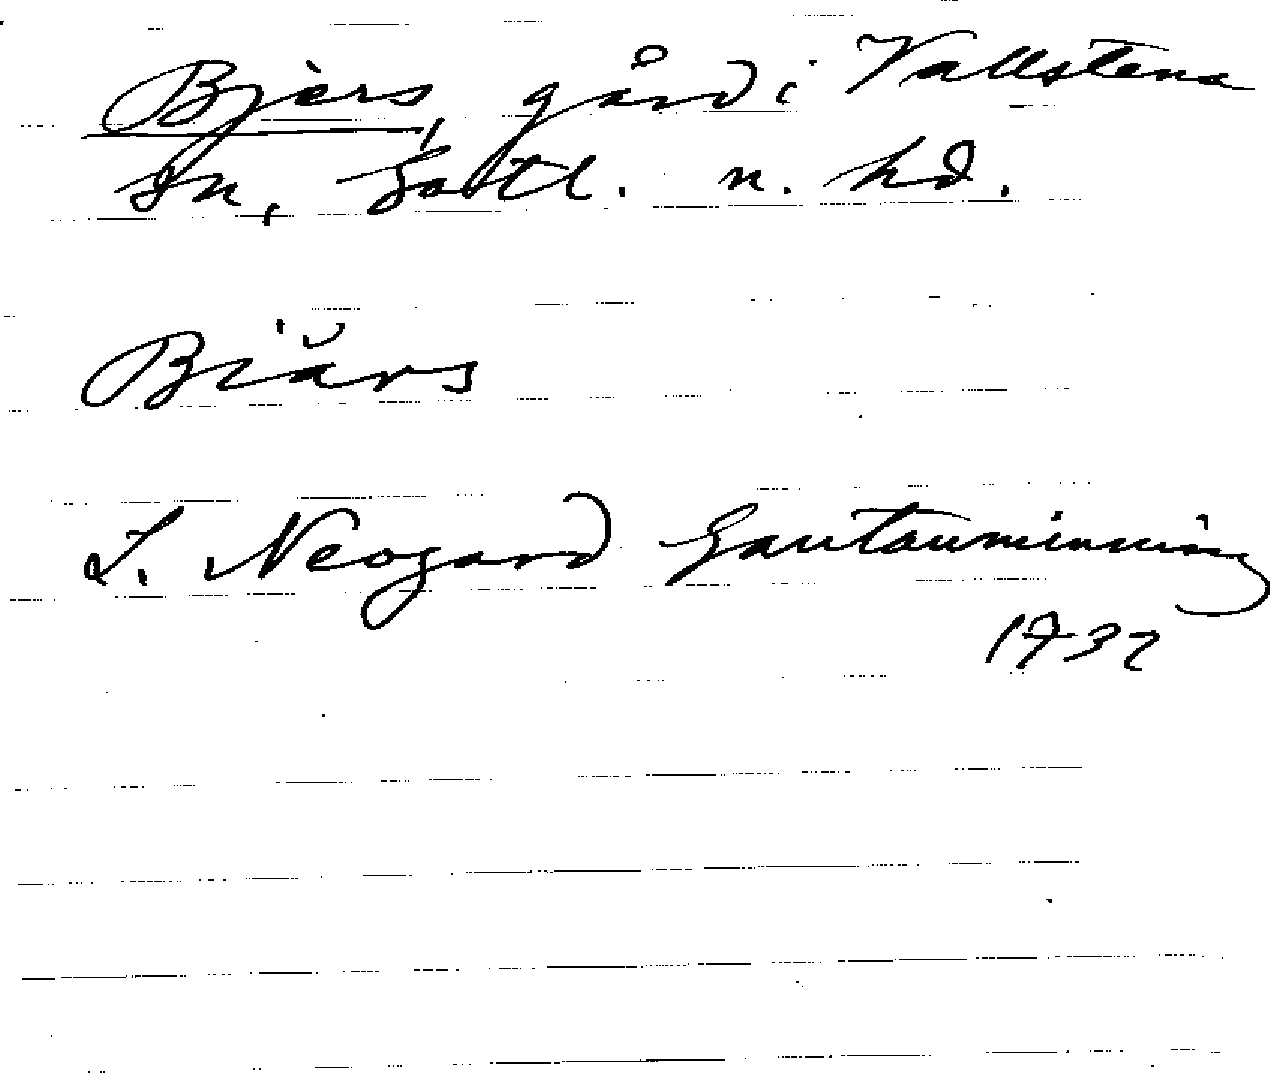 Bjers, gård i Vallstena
sn, Gotl. n. hd.
Biärs
L. Neogard Gautauminning
1732